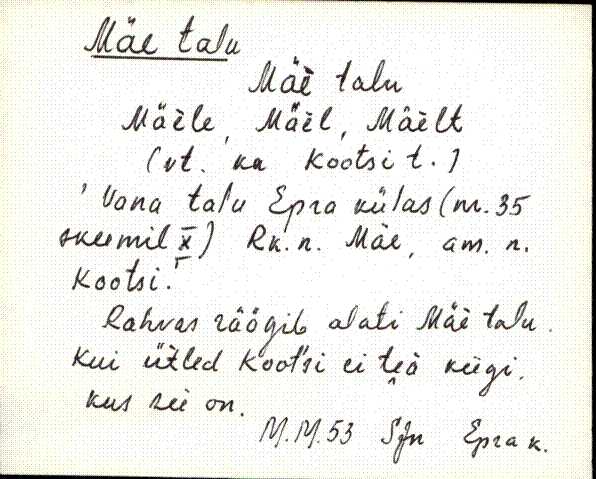 Mäe talu
Mäè talu
Mäèle, Mäèl, Mäèlt
(vt. ka Kootsi t.)
'Vana talu Epra külas (nr. 35
skeemil X) Rk. n. Mäe, am. n.
Kootsi.'
Rahvas räägib alati Mäè talu.
Kui ütled Kootsi ei teä keegi,
kus see on.
M.M. 53 Sjn Epra k.